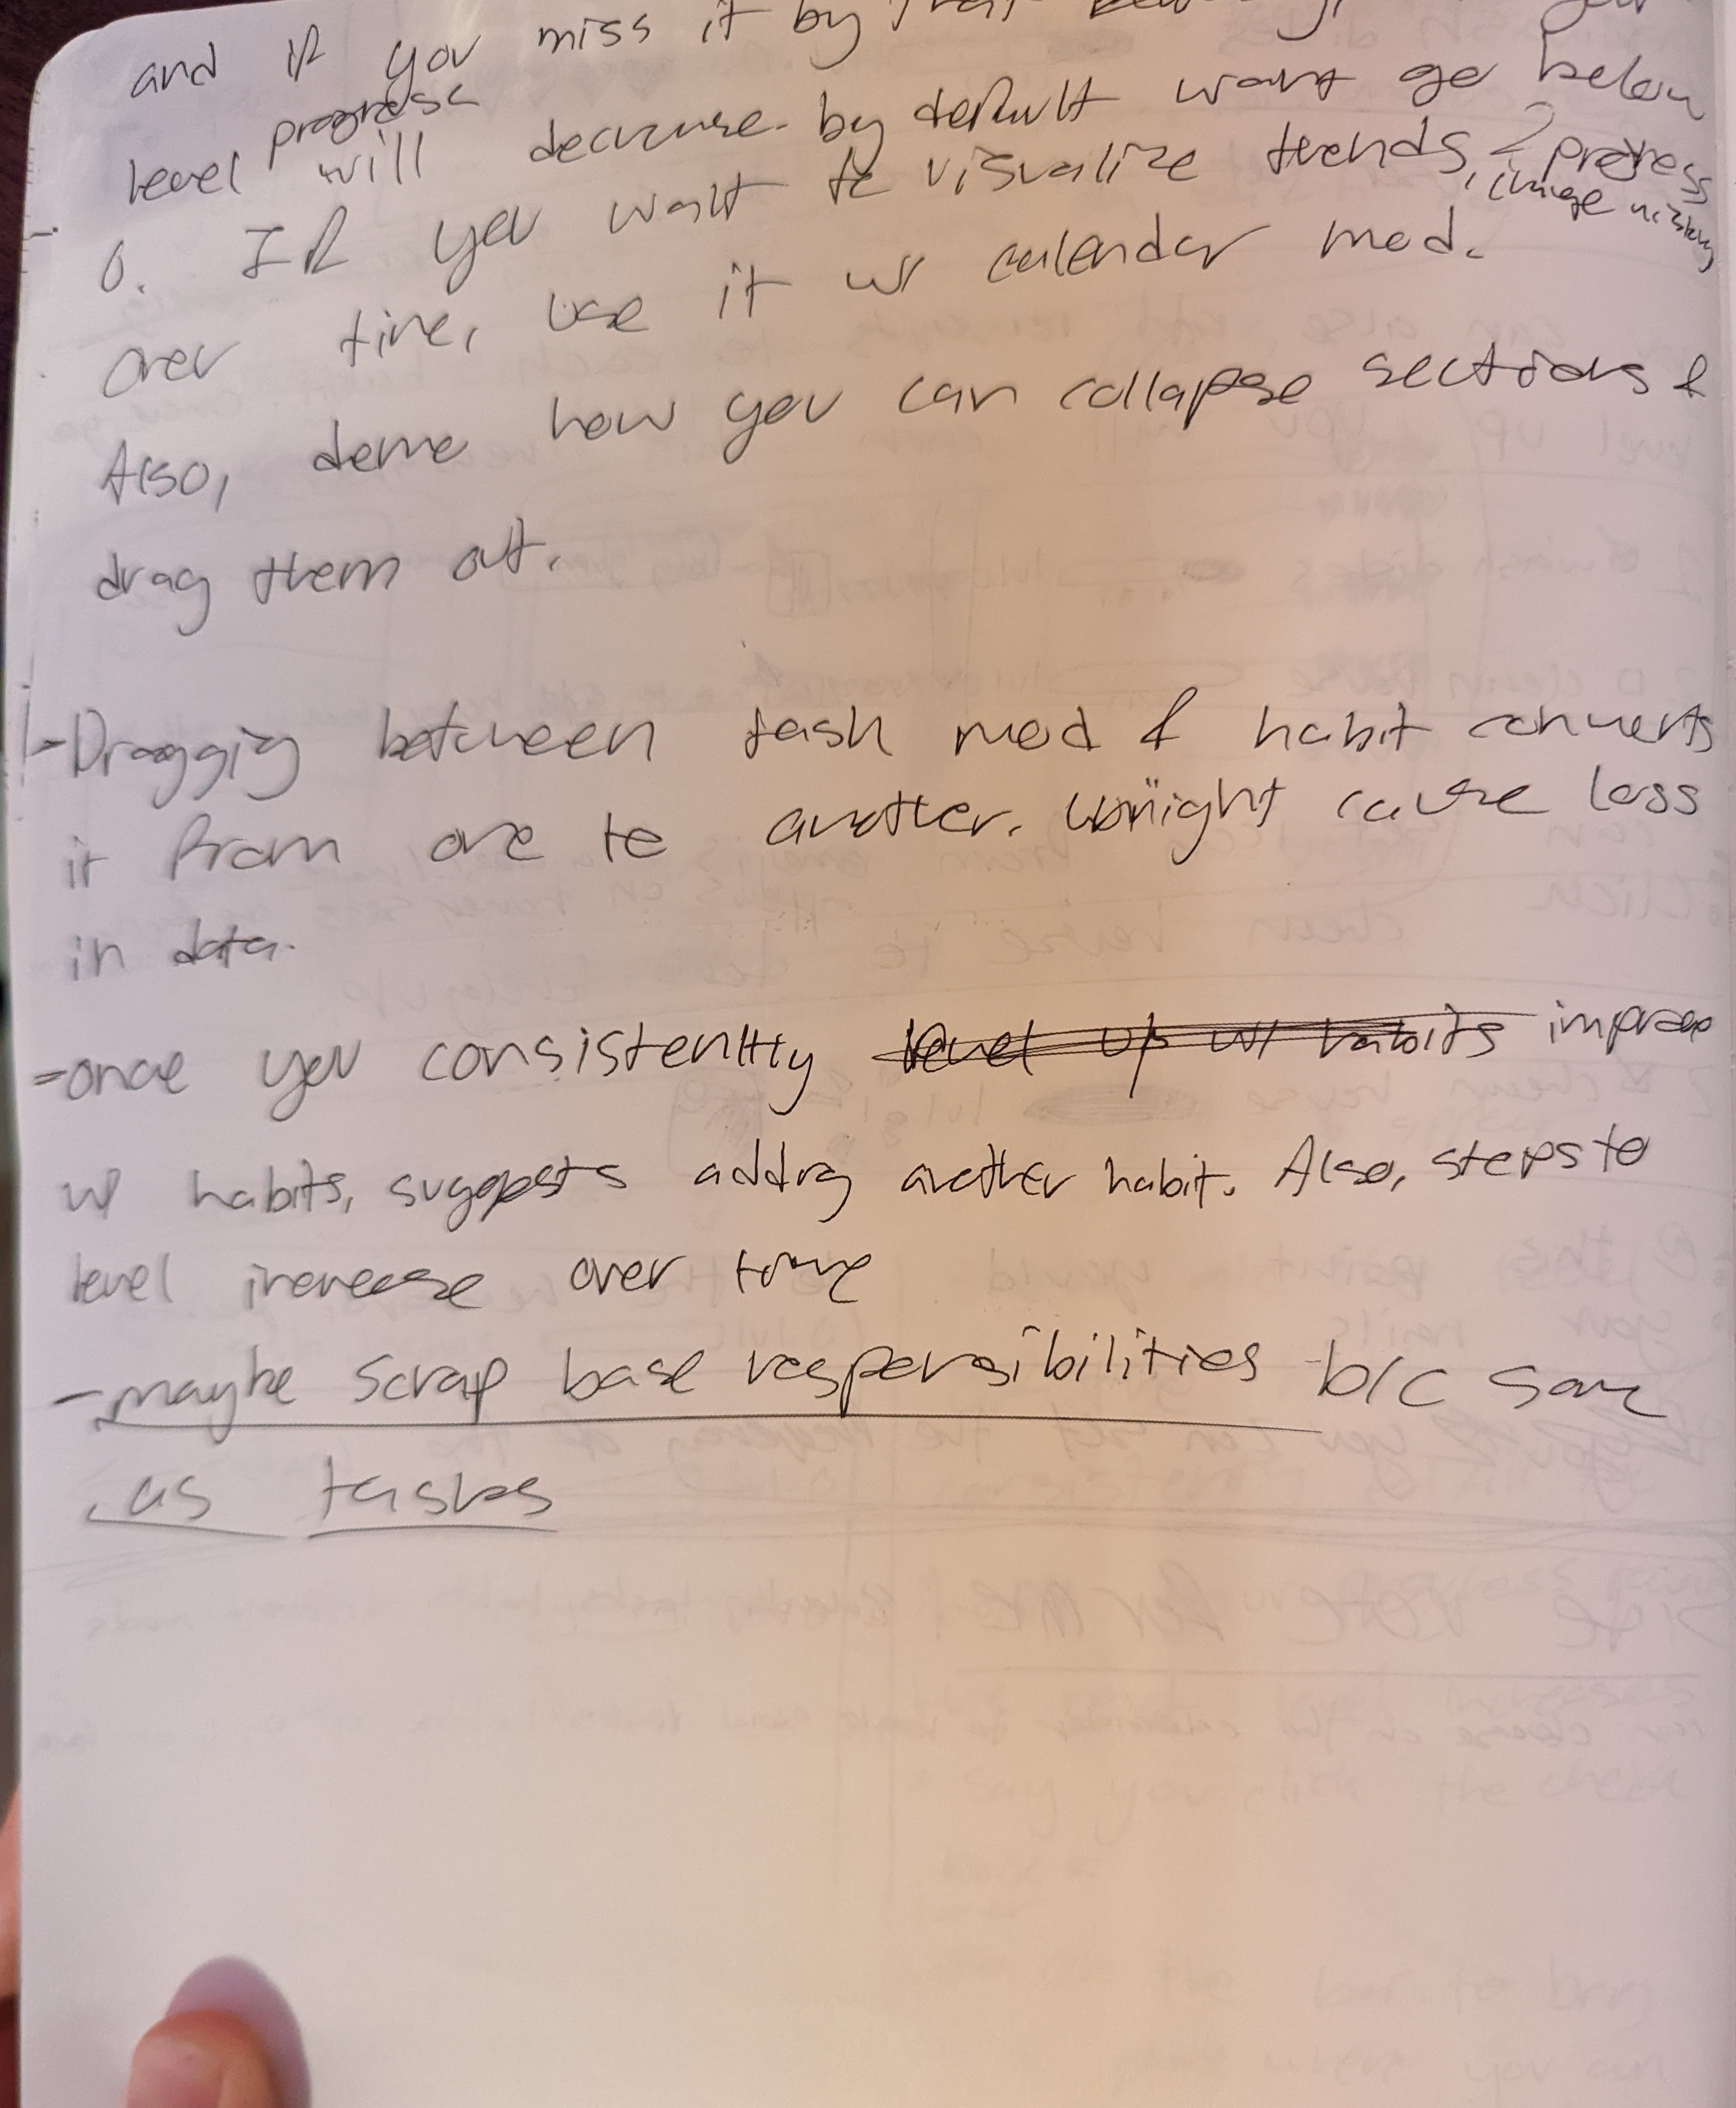 and if you miss it by that
level progress will decrease. by default wont go below
0. If you want to visualize trends, progress
image history
over time, use it w/ calender mod.
Also, demo how you can collapse sections &
drag them out.
- Draggig between task mod & habit converts
it from one to another. might cause loss
in data.
- once you consistently level up w/ habits improve
w/ habits, suggests adding another habit. Also, steps to
level increase over time
- maybe scrap base responsibilities b/c same
as tasks